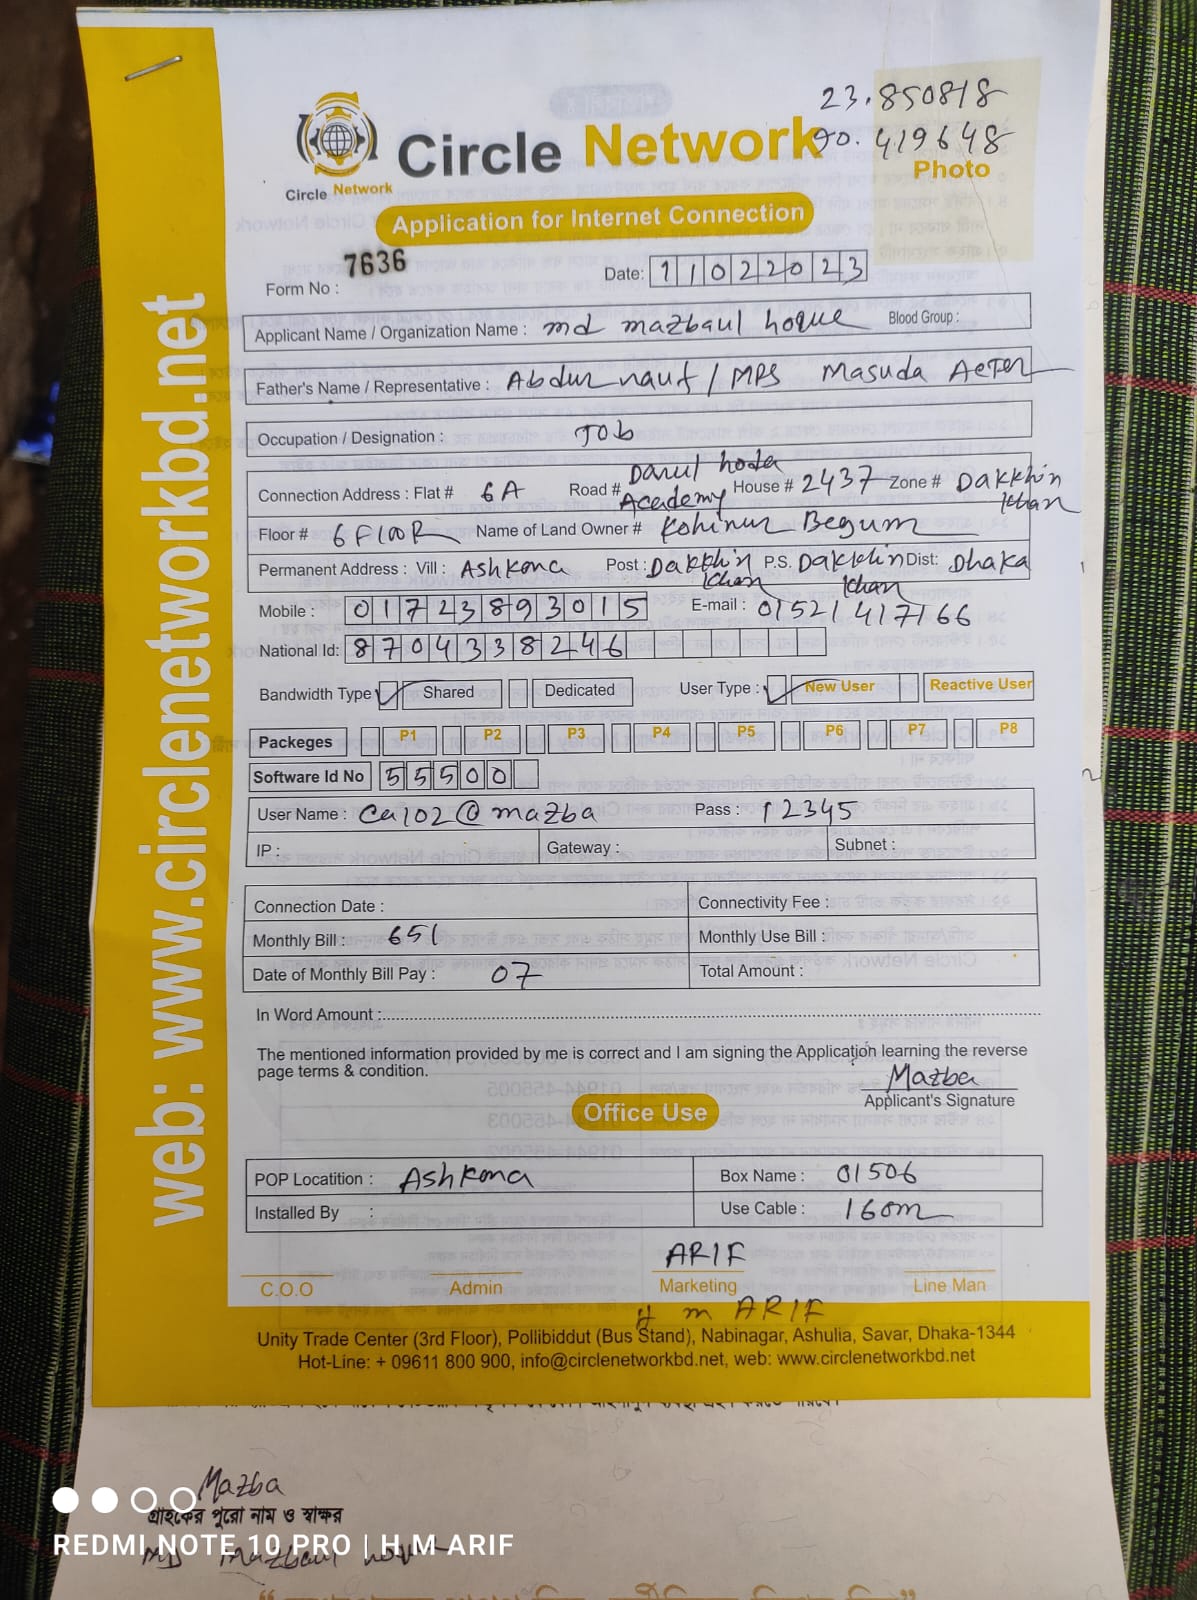 23.850818
90.419648
Photo
Circle Network
Circle Network
Application for Internet Connection
7636
Form No :
Date: 11022023
Applicant Name / Organization Name : md mazbaul hoque Blood Group :
Father's Name / Representative : Abdur rauf / MPS Masuda AcTer
Occupation / Designation : JOb
Connection Address : Flat # 6A Road # Darul hoda Academy House # 2437 Zone # Dakkhin Khan
Floor # 6 FlooR Name of Land Owner # Kohinur Begum
Permanent Address : Vill : Ashkona Post : Dakkhin Khan P.S. Dakkhin Khan Dist: Dhaka
Mobile : 01723893015 E-mail : 01521417166
National Id: 8704338246
Bandwidth Type Shared Dedicated User Type : New User Reactive User
Packeges P1 P2 P3 P4 P5 P6 P7 P8
Software Id No 55500
User Name : Ca102@mazba Pass : 12345
IP : Gateway : Subnet :
Connection Date : Connectivity Fee :
Monthly Bill : 651 Monthly Use Bill :
Date of Monthly Bill Pay : 07 Total Amount :
In Word Amount :
The mentioned information provided by me is correct and I am signing the Application learning the reverse
page terms & condition.
Mazba
Applicant's Signature
Office Use
POP Locatition : Ashkona Box Name : 01506
Installed By : Use Cable : 160m
ARIF
C.O.O Admin Marketing Line Man
H m ARIF
Unity Trade Center (3rd Floor), Pollibiddut (Bus Stand), Nabinagar, Ashulia, Savar, Dhaka-1344
Hot-Line: + 09611 800 900, info@circlenetworkbd.net, web: www.circlenetworkbd.net
web: www.circlenetworkbd.net
Mazba
গ্রাহকের পুরো নাম ও স্বাক্ষর
REDMI NOTE 10 PRO | H M ARIF
MD Mazbaul